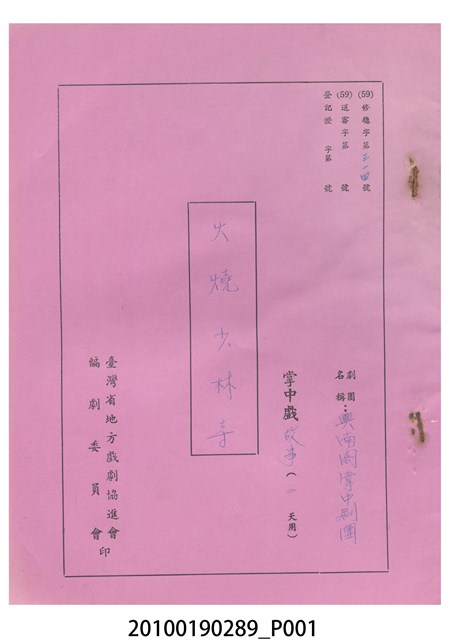 (59)修應字第三一四號
(59)送審字第 號
登記證 字第 號
劇團名稱：興南閣掌中劇團
掌中戲故事(一天用)
火燒少林寺
臺灣省地方戲劇協進會
編劇委員會印
20100190289_P001